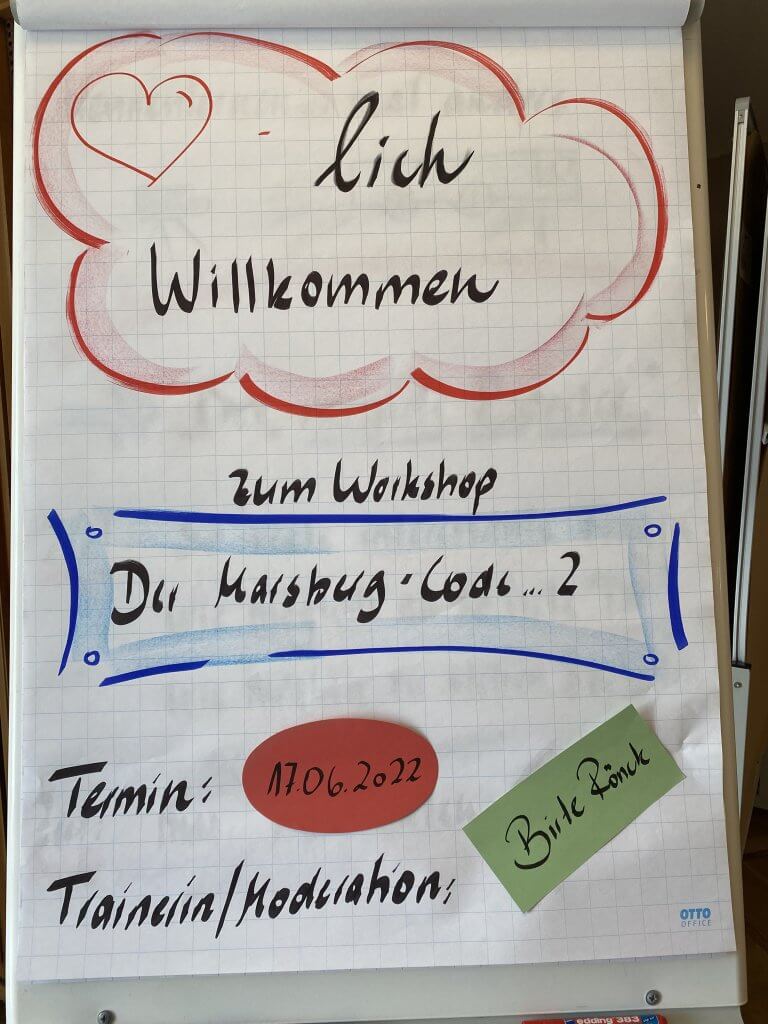 - lich
Willkommen
zum Workshop
Der Marsberg-Code... 2
Termin: 17.06.2022
Trainerin/Moderation: Birte Rönck
OTTO
OFFICE
edding 383